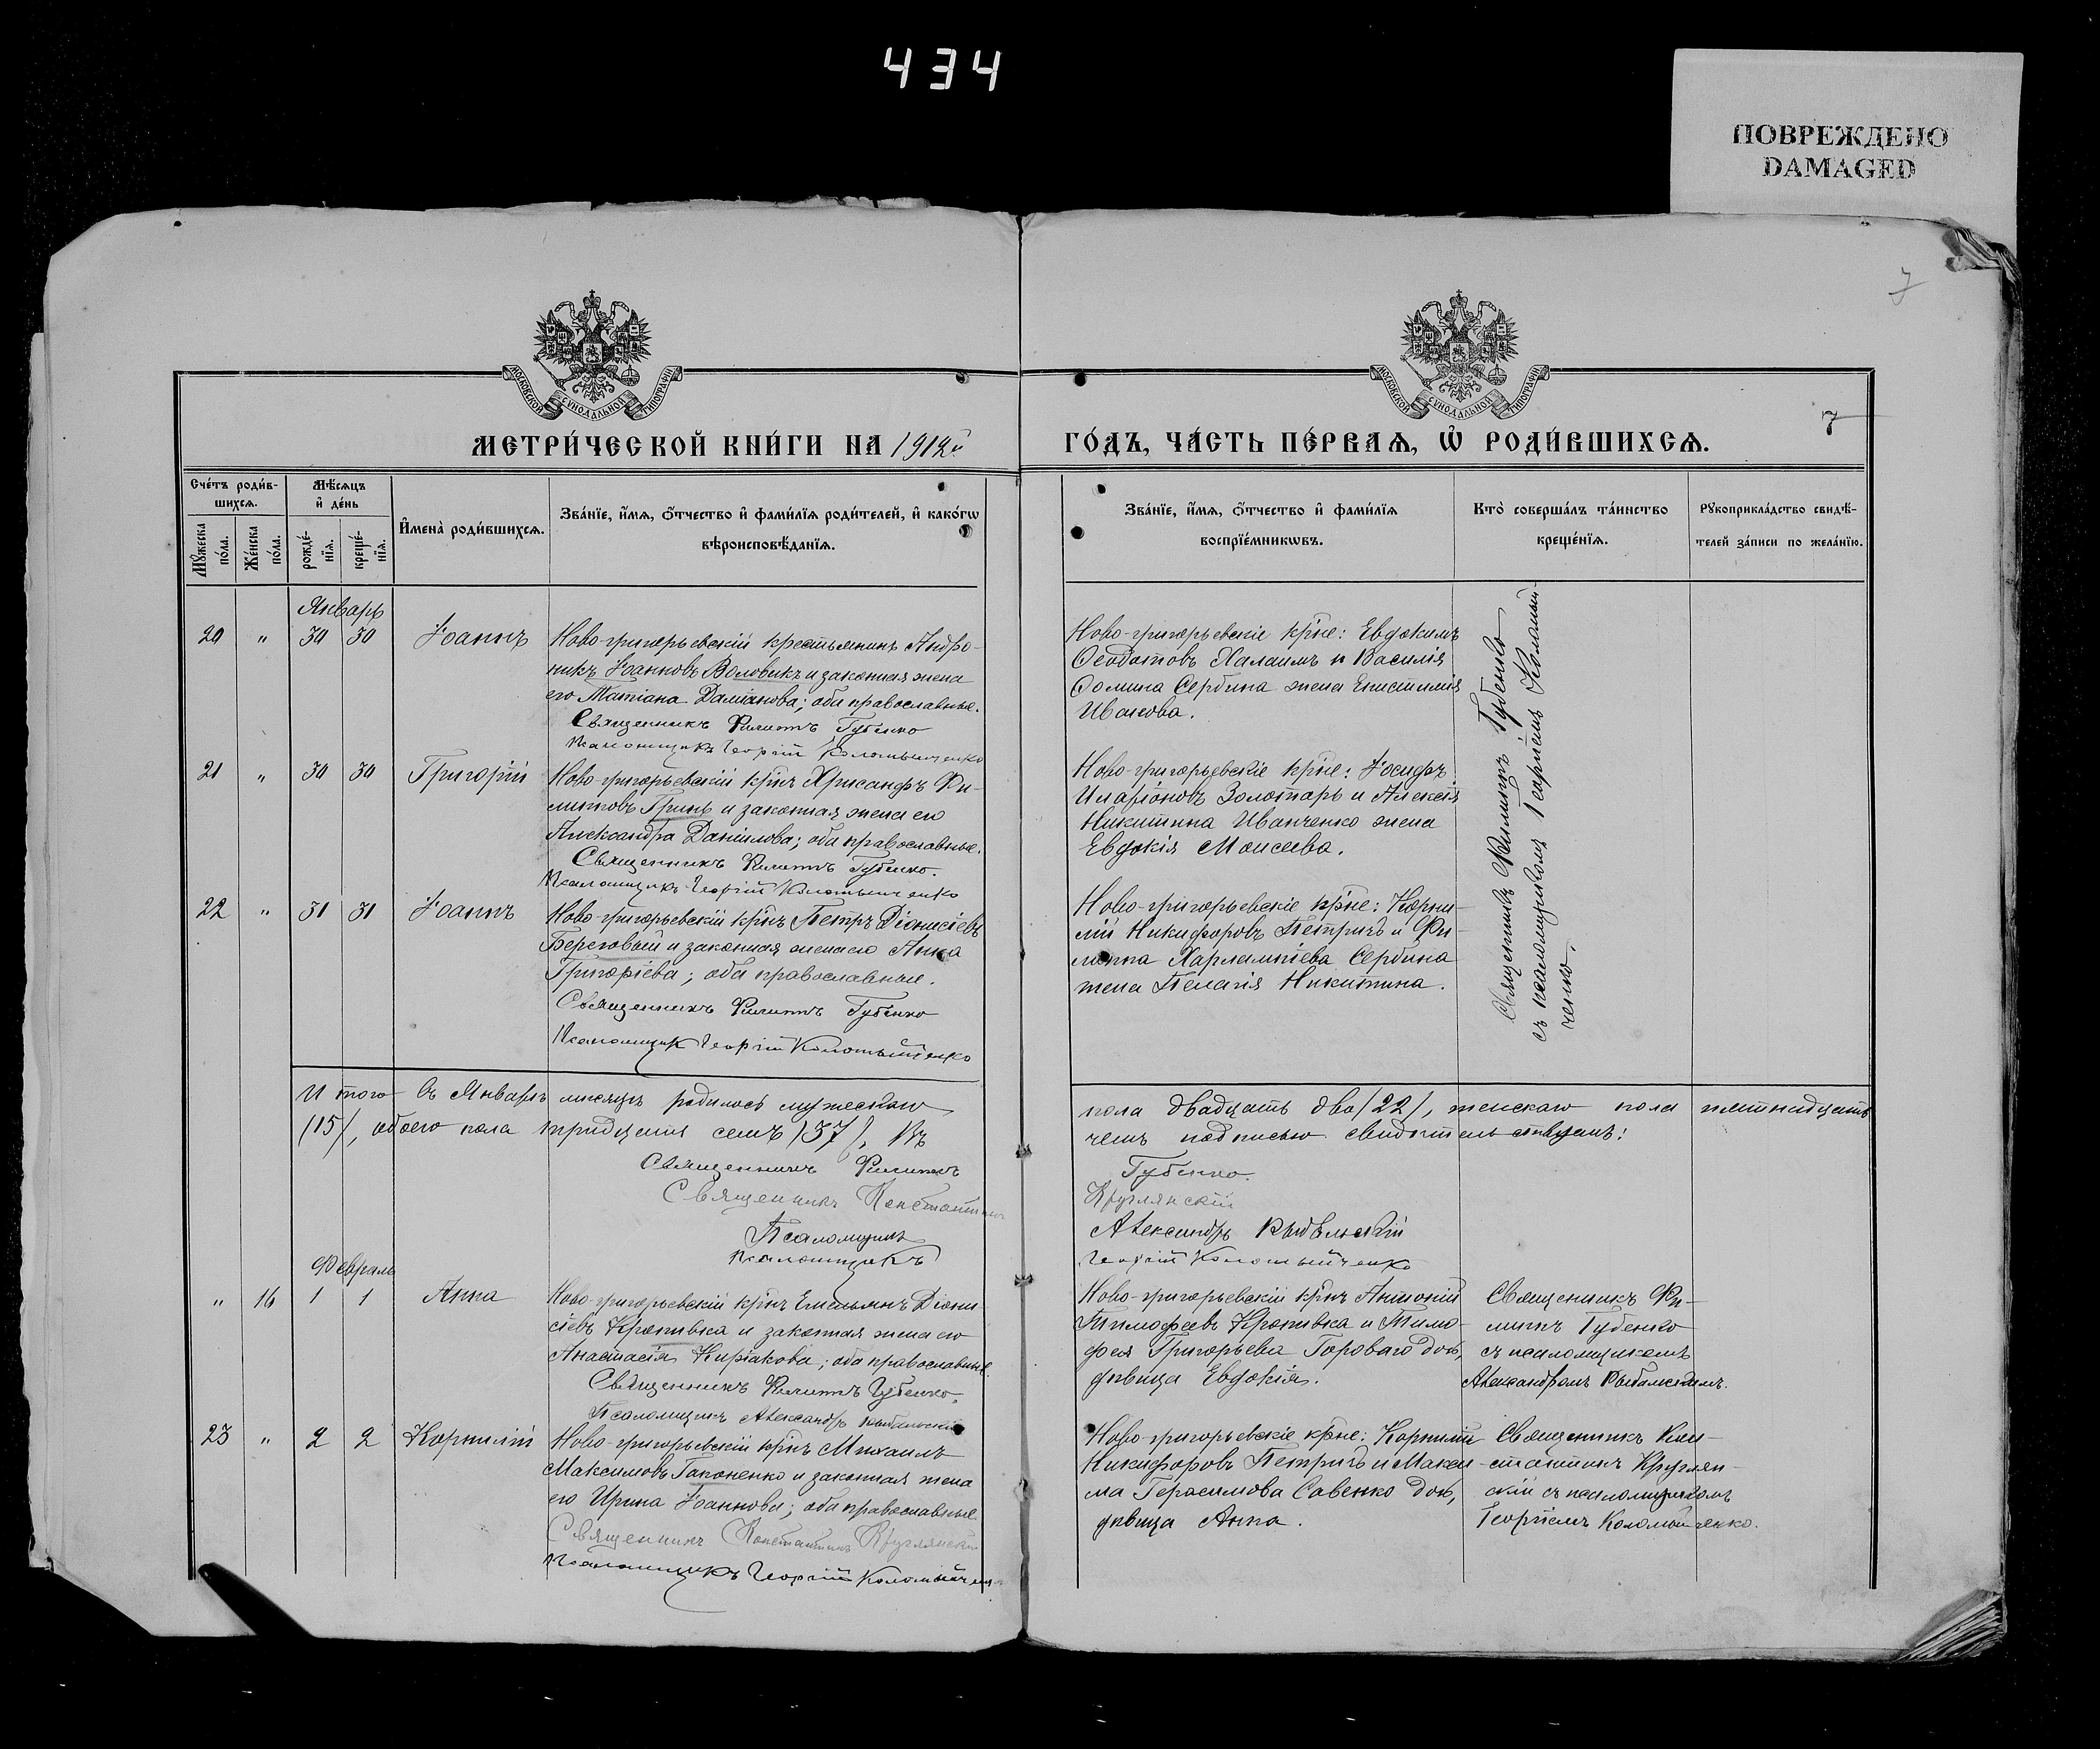 434
ПОВРЕЖДЕНО
DAMAGED
7
МОСКОВСКОЙ СѴНОДАЛЬНОЙ ТИПОГРАФІИ
МОСКОВСКОЙ СѴНОДАЛЬНОЙ ТИПОГРАФІИ
7
МЕТРИ́ЧЕСКОЙ КНИ́ГИ НА 1912й
ГО́ДЪ, ЧА́СТЬ ПЕ́РВАѦ, Ѡ҆ РОДИ́ВШИХСѦ.
Сче́тъ роди́в-
шихсѧ.
Мꙋ́жеска по́ла.
Же́нска по́ла.
Мѣ́сѧцъ
и҆ де́нь
рожде́-
нїѧ.
креще́-
нїѧ.
И҆мена̀ роди́вшихсѧ.
Зва́нїе, и҆́мѧ, ѻ҆́тчество и҆ фами́лїѧ роди́телей, и҆ како́гѡ
вѣроисповѣ́данїѧ.
Зва́нїе, и҆́мѧ, ѻ҆́тчество и҆ фами́лїѧ
воспрїе́мникѡвъ.
Кто̀ соверша́лъ та́инство
креще́нїѧ.
Рꙋкоприкла́дство свидѣ́-
телей за́писи по жела́нїю.
Январь
20 " 30 30 Іоаннъ
Ново-григорьевскій крестьянинъ Андро-
никъ Іоанновъ Воловикъ и законная жена
его Татіана Даміанова; оба православные.
Священникъ Филиппъ Губенко
Псаломщикъ Георгій Коломыйченко
Ново-григорьевскіе кр҃не: Евдокимъ
Ѳеодотовъ Халаимъ и Василія
Ѳомина Сербина жена Епистимія
Ивакова.
21 " 30 30 Григорій
Ново-григорьевскій кр҃нъ Хрисанфъ Фи-
липповъ Гринь и законная жена его
Александра Даніилова; оба православные.
Священникъ Филиппъ Губенко.
Псаломщикъ Георгій Коломыйченко
Ново-григорьевскіе кр҃не: Іосифъ
Иларіоновъ Золотарь и Алексія
Никитина Иванченко жена
Евдокія Моисеева.
22 " 31 31 Іоаннъ
Ново-григорьевскій кр҃нъ Петръ Діонисіевъ
Береговый и законная жена его Анна
Григоріева; оба православные.
Священникъ Филиппъ Губенко
Псаломщикъ Георгій Коломыйченко
Ново-григорьевскіе кр҃не: Корни-
лій Никифоровъ Петричъ и Фи-
липпа Харлампіева Сербина
жена Пелагія Никитина.
Священникъ Филиппъ Губенко
съ псаломщикомъ Георгіемъ Коломый-
ченко.
Итого въ Январѣ мѣсяцѣ родилось мужескаго
пола двадцать два /22/, женскаго пола пятнадцать
/15/, обоего пола тридцать семь /37/, Въ
чемъ подписью свидѣтельствуемъ:
Священникъ Филиппъ Губенко.
Священникъ Константинъ Круглянскій
Псаломщикъ Александръ
Псаломщикъ Георгій Коломыйченко
Февраль
" 16 1 1 Анна
Ново-григорьевскій кр҃нъ Емельянъ Діони-
сіевъ Кропивка и законная жена его
Анастасія Киріакова; оба православные.
Священникъ Филиппъ Губенко.
Псаломщикъ Александръ
Ново-григорьевскій кр҃нъ Антоній
Тимофеевъ Кропивка и Тимо-
фея Григорьева Горового дочь,
дѣвица Евдокія.
Священникъ Фи-
липпъ Губенко
съ псаломщикомъ
Александромъ
23 " 2 2 Корнилій
Ново-григорьевскій кр҃нъ Михаилъ
Максимовъ Гапоненко и законная жена
его Ирина Іоаннова; оба православные
Священникъ Константинъ Круглянскій
Псаломщикъ Георгій Коломыйченко
Ново-григорьевскіе кр҃не: Корнилій
Никифоровъ Петричъ и Макси-
ма Герасимова Савенко дочь,
дѣвица Анна.
Священникъ Кон-
стантинъ Круглян-
скій съ псаломщикомъ
Георгіемъ Коломыйченко.